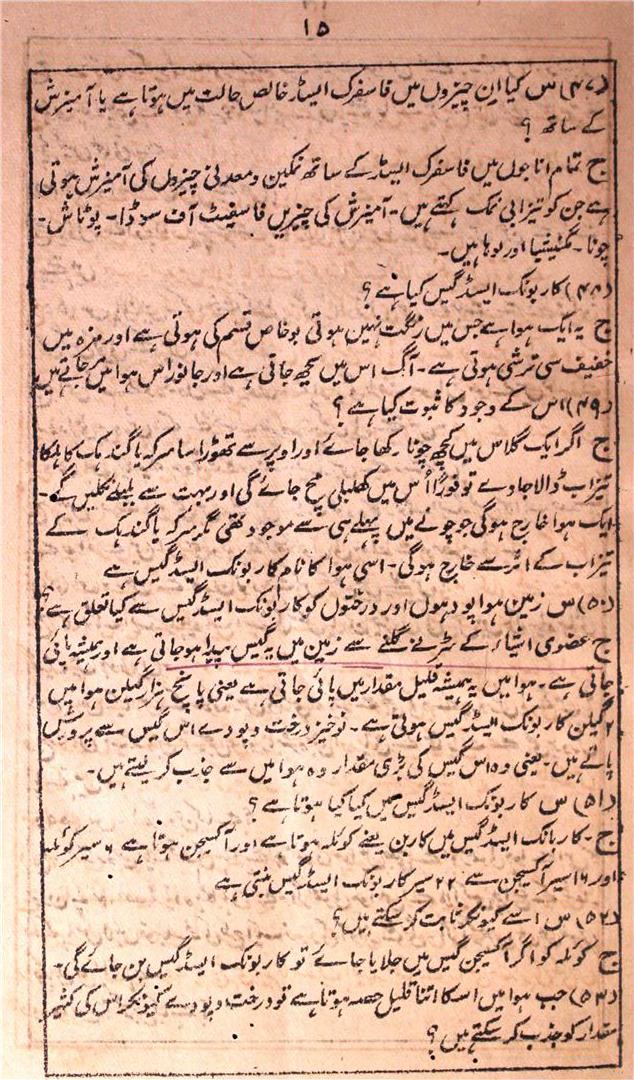 ۱۵
(۴۷) س کیا ان چیزوں میں فاسفرک ایسڈ خالص حالت میں ہوتا ہے یا آمیزش
کے ساتھ ؟
ج تمام اناجوں میں فاسفرک ایسڈ کے ساتھ نمکین و معدنی چیزوں کی آمیزش ہوتی
ہے جن کو تیزابی نمک کہتے ہیں۔ آمیزش کی چیزیں فاسفیٹ آف سوڈا۔ پوٹاش۔
چونا۔ مگنیشیا اور لوہا ہیں۔
(۴۸) کاربونک ایسڈ گیس کیا ہے ؟
ج یہ ایک ہوا ہے جس میں رنگت نہیں ہوتی بو خاص قسم کی ہوتی ہے اور مزہ میں
خفیف سی ترشی ہوتی ہے۔ آگ اس میں بجھ جاتی ہے اور جانور اس ہوا میں مر جاتے ہیں
(۴۹) اس کے وجود کا ثبوت کیا ہے ؟
ج اگر ایک گلاس میں کچھ چونا رکھا جائے اور اوپر سے تھوڑا سا سرکہ یا گندہک کا ہلکا
تیزاب ڈالا جاوے تو فوراً اُس میں کھلبلی مچ جائے گی اور بہت سے بلبلے نکلیں گے۔
ایک ہوا خارج ہوگی جو چونے میں پہلے ہی سے موجود تھی مگر سرکہ یا گندہک کے
تیزاب کے اثر سے خارج ہوگی۔ اسی ہوا کا نام کاربونک ایسڈ گیس ہے
(۵۰) س زمین ہوا پودہوں اور درختوں کو کاربونک ایسڈ گیس سے کیا تعلق ہے؟
ج عضوی اشیاء کے سڑنے گلنے سے زمین میں یہ گیس پیدا ہو جاتی ہے اور ہمیشہ پائی
جاتی ہے۔ ہوا میں یہ ہمیشہ قلیل مقدار میں پائی جاتی ہے یعنی پانچ ہزار گیلن ہوا میں
۲ گیلن کاربونک ایسڈ گیس ہوتی ہے۔ نوخیز درخت و پودے اس گیس سے پرورش
پاتے ہیں۔ یعنی وہ اس گیس کی بڑی مقدار وہ ہوا میں سے جذب کر لیتے ہیں۔
(۵۱) س کاربونک ایسڈ گیس میں کیا کیا ہوتا ہے ؟
ج۔ کاربانک ایسڈ گیس میں کاربن یعنے کوئلہ ہوتا ہے اور آکسیجن ہوتا ہے ۶ سیر کوئلہ
اور ۱۶ سیر آکسیجن سے ۲۲ سیر کاربونک ایسڈ گیس بنتی ہے
(۵۲) س اسے کیونکر ثابت کر سکتے ہیں؟
ج کوئلہ کو اگر آکسیجن گیس میں جلایا جائے تو کاربونک ایسڈ گیس بن جائے گی۔
(۵۳) جب ہوا میں اسکا اتنا قلیل حصہ ہوتا ہے تو درخت و پودے کیونکر اس کی کثیر
مقدار کو جذب کر سکتے ہیں؟